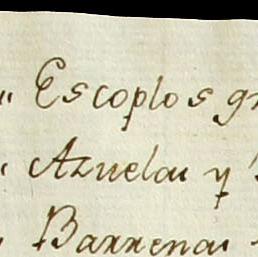 " Escoplos gr
" Azuelas y
" Barrenas